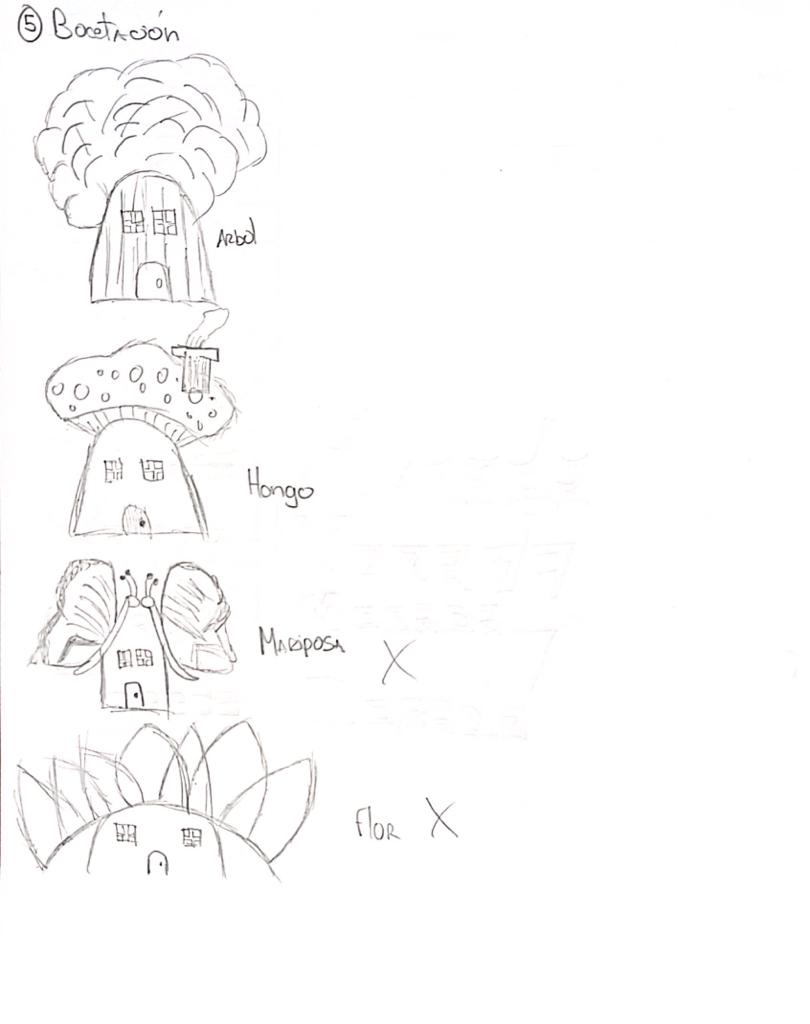 5 Bocetación
Arbol
Hongo
Mariposa X
Flor X